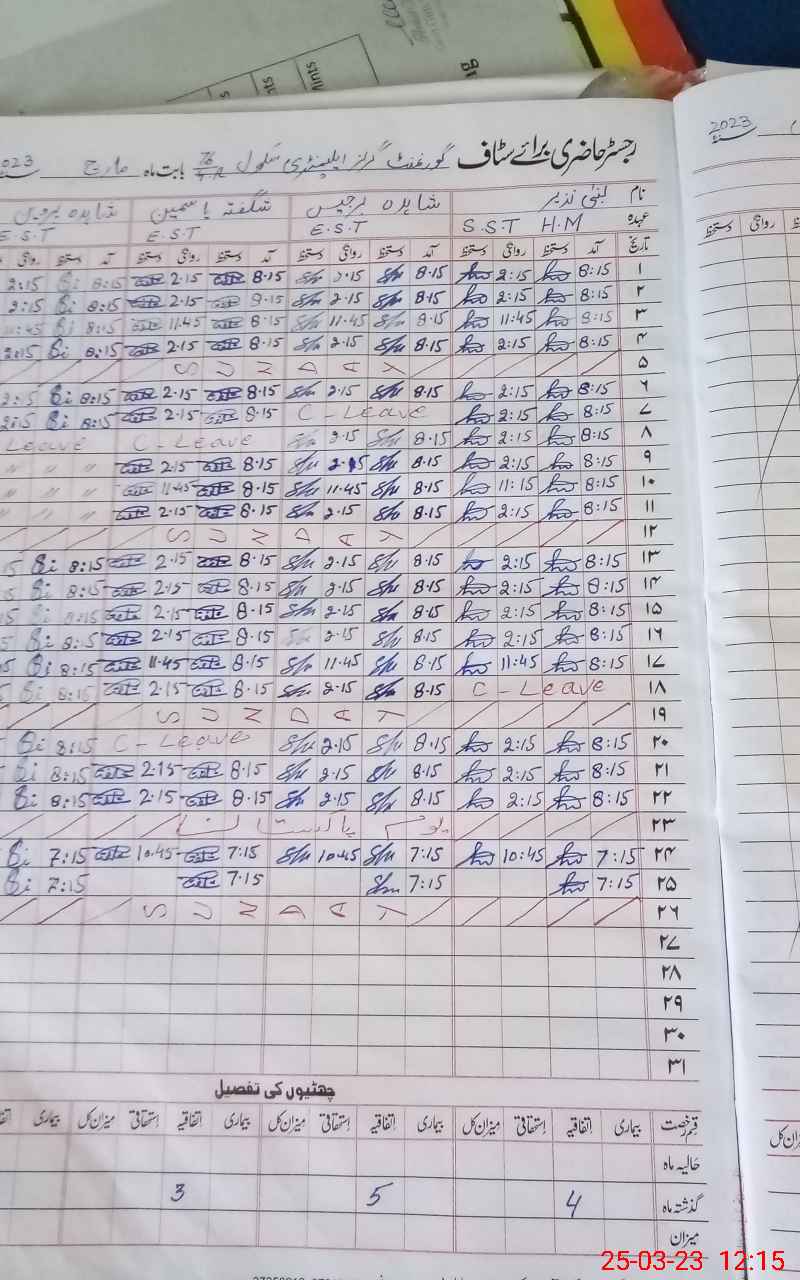 2023
رجسٹر حاضری برائے سٹاف گورنمنٹ گرلز ایلیمنٹری سکول 76 بابت ماہ مارچ 2023
نام لبنیٰ نذیر شاہدہ برجیس شگفتہ یاسمین شاہدہ پروین
عہدہ S.S.T H.M E.S.T E.S.T E.S.T
تاریخ آمد دستخط روانگی دستخط آمد دستخط روانگی دستخط آمد دستخط روانگی دستخط آمد دستخط روانگی
۱ 8:15 2:15 8.15 2.15 8.15 2.15 8:15 2:15
۲ 8:15 2:15 8.15 2.15 8.15 2.15 8:15 2:15
۳ 8:15 11:45 8.15 11.45 8.15 11.45 8:15 11:45
۴ 8:15 2:15 8.15 2.15 8.15 2.15 8:15 2:15
۵ SUNDAY
۶ 8:15 2:15 8.15 2.15 8.15 2.15 8:15 2:15
۷ 8:15 2:15 C-Leave 8.15 2.15 8:15 2:15
۸ 8:15 2:15 8.15 2.15 C-Leave Leave
۹ 8:15 2:15 8.15 2.15 8.15 2.15 " " "
۱۰ 8:15 11:15 8.15 11.45 8.15 11.45 " " "
۱۱ 8:15 2:15 8.15 2.15 8.15 2.15 " " "
۱۲ SUNDAY
۱۳ 8:15 2:15 8.15 2.15 8.15 2.15 8:15
۱۴ 8:15 2:15 8.15 2.15 8.15 2.15 8:15
۱۵ 8:15 2:15 8.15 2.15 8.15 2.15 8:15
۱۶ 8:15 2:15 8.15 2.15 8.15 2.15 8:15
۱۷ 8:15 11:45 8.15 11.45 8.15 11.45 8:15
۱۸ C-Leave 8.15 2.15 8.15 2.15 8:15
۱۹ SUNDAY
۲۰ 8:15 2:15 8.15 2.15 C-Leave 8:15
۲۱ 8:15 2:15 8.15 2.15 8.15 2.15 8:15
۲۲ 8:15 2:15 8.15 2.15 8.15 2.15 8:15
۲۳ یوم پاکستان
۲۴ 7:15 10:45 7:15 10.45 7.15 10.45 7:15
۲۵ 7:15 7:15 7.15 7:15
۲۶ SUNDAY
۲۷
۲۸
۲۹
۳۰
۳۱
چھٹیوں کی تفصیل
قسم رخصت بیماری اتفاقیہ استحقاقی میزان کل بیماری اتفاقیہ استحقاقی میزان کل بیماری اتفاقیہ استحقاقی میزان کل بیماری
حالیہ ماہ
گذشتہ ماہ 4 5 3
میزان
25-03-23 12:15